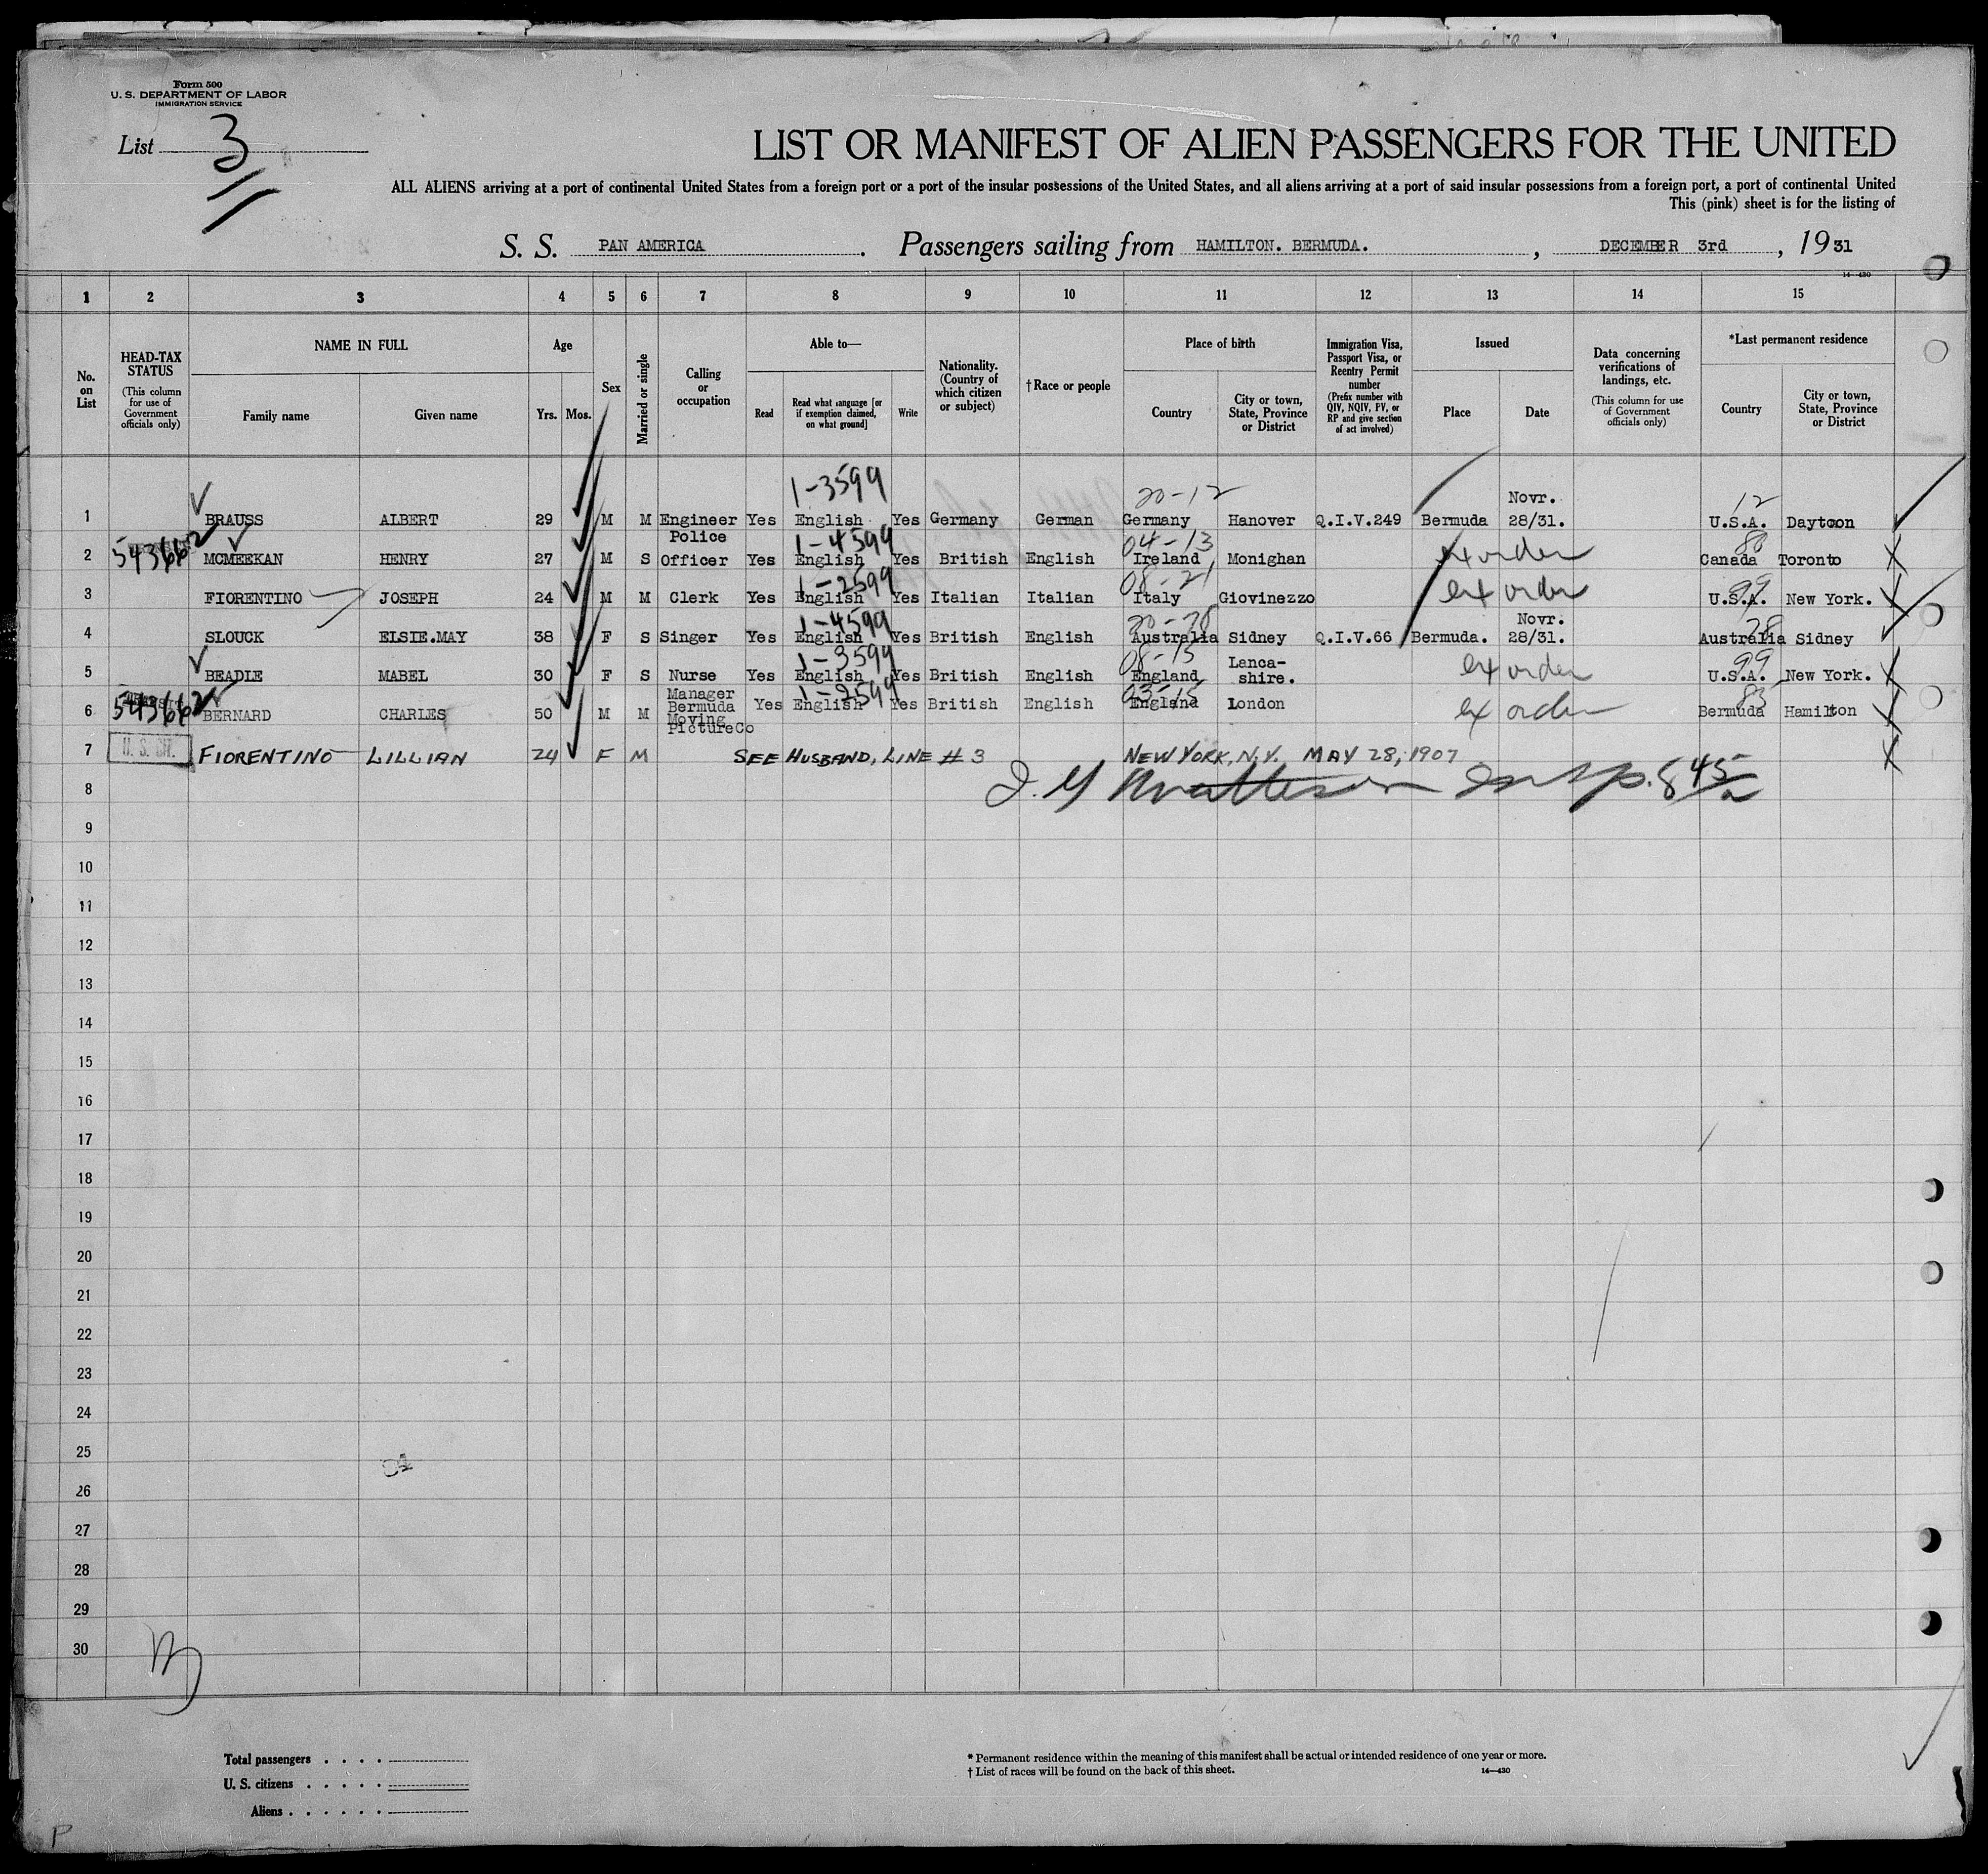 Form 500
U. S. DEPARTMENT OF LABOR
IMMIGRATION SERVICE
List 3
LIST OR MANIFEST OF ALIEN PASSENGERS FOR THE UNITED
ALL ALIENS arriving at a port of continental United States from a foreign port or a port of the insular possessions of the United States, and all aliens arriving at a port of said insular possessions from a foreign port, a port of continental United
This (pink) sheet is for the listing of
S. S. PAN AMERICA. Passengers sailing from HAMILTON. BERMUDA., DECEMBER 3rd, 1931
14-430
1 2 3 4 5 6 7 8 9 10 11 12 13 14 15
No. on List
HEAD-TAX STATUS
(This column for use of Government officials only)
NAME IN FULL
Family name Given name
Age
Yrs. Mos.
Sex
Married or single
Calling or occupation
Able to—
Read Read what language [or if exemption claimed, on what ground] Write
Nationality. (Country of which citizen or subject)
†Race or people
Place of birth
Country City or town, State, Province or District
Immigration Visa, Passport Visa, or Reentry Permit number
(Prefix number with QIV, NQIV, PV, or RP and give section of act involved)
Issued
Place Date
Data concerning verifications of landings, etc.
(This column for use of Government officials only)
*Last permanent residence
Country City or town, State, Province or District
1-3599 20-12 Novr. 12
1 BRAUSS ALBERT 29 M M Engineer Yes English Yes Germany German Germany Hanover Q.I.V.249 Bermuda 28/31. U.S.A. Daytoon
Police 1-4599 04-13 80
2 543662 MCMEEKAN HENRY 27 M S Officer Yes English Yes British English Ireland Monighan ex order Canada Toronto
1-2599 08-21 99
3 FIORENTINO JOSEPH 24 M M Clerk Yes English Yes Italian Italian Italy Giovinezzo ex order U.S.A. New York.
1-4599 20-28 Novr. 28
4 SLOUCK ELSIE.MAY 38 F S Singer Yes English Yes British English Australia Sidney Q.I.V.66 Bermuda. 28/31. Australia Sidney
1-3599 08-15 Lanca- 99
5 BEADLE MABEL 30 F S Nurse Yes English Yes British English England shire. ex order U.S.A. New York.
Manager 1-2599 03-15 83
6 543662 BERNARD CHARLES 50 M M Bermuda Yes English Yes British English England London ex order Bermuda Hamilton
Moving
PictureCo
7 U. S. FIORENTINO LILLIAN 24 F M SEE HUSBAND, LINE #3 NEW YORK, N.Y. MAY 28, 1907
8 Insp. 845
9
10
11
12
13
14
15
16
17
18
19
20
21
22
23
24
25
26
27
28
29
30
Total passengers . . . .
U. S. citizens . . . . .
Aliens . . . . . .
* Permanent residence within the meaning of this manifest shall be actual or intended residence of one year or more.
† List of races will be found on the back of this sheet. 14—430
P